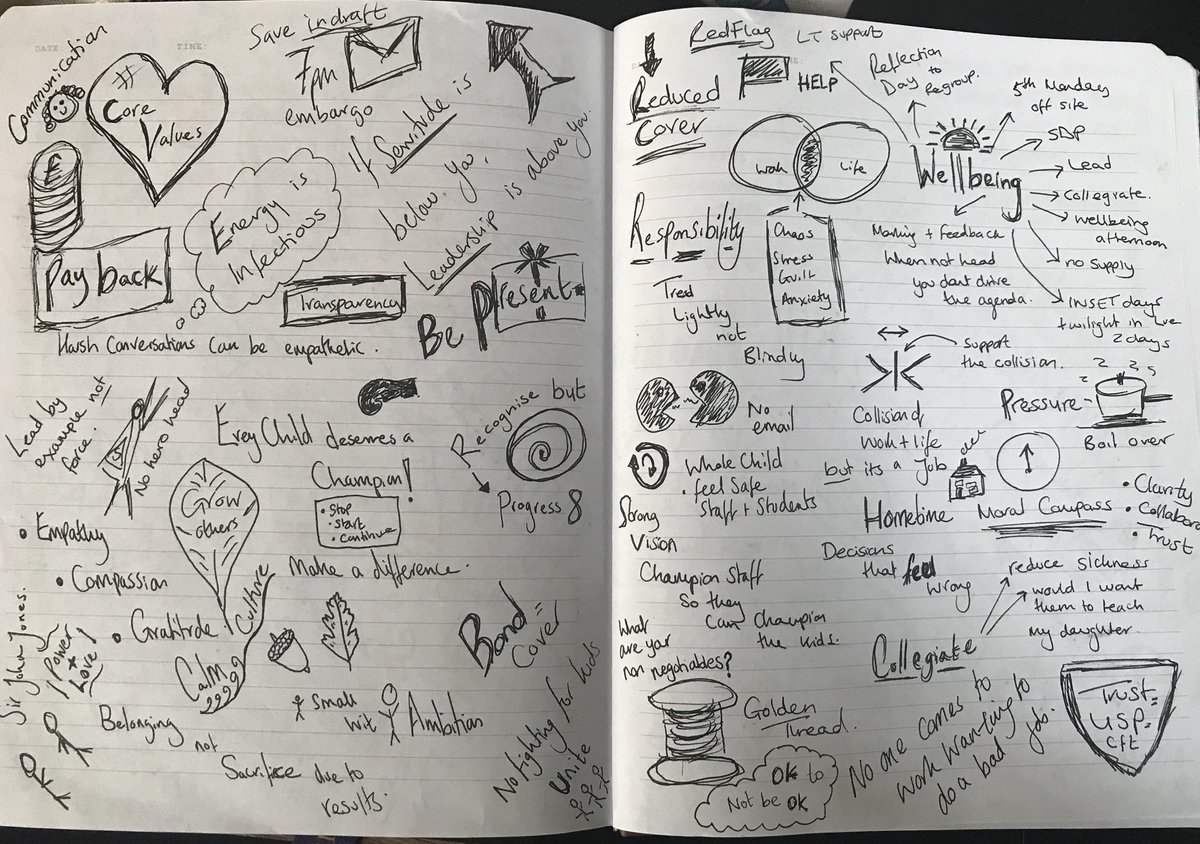 DATE:
TIME:
Communication
#
Core
Values
Save in draft
7pm
embargo
If Servitude is
below you,
Leadership is above you.
£
Pay back
Energy is
Infectious
Transparency
Be Present
Harsh Conversations can be empathetic.
Lead by
example not
force.
No hero head
Erey Child deserves a
Champion!
• Stop
• Start
• Continue
Make a difference.
Recognise but
Progress 8
Grow
others
• Empathy
• Compassion
• Gratitude
Culture
Calm
Sir John Jones.
Power
+
Love
Belonging
not
Sacrifice due to
results.
small
wit
Ambition
Bond =
Cover
No fighting for kids
Unite
Red Flag
LT support
HELP
Reduced
Cover
Reflection
Day to
Regroup.
5th Monday
off site
SDP
Lead
Collegiate.
wellbeing
afternoon
no supply
INSET days
+ twilight in
2 days
Wellbeing
Work
Life
Chaos
Stress
Guilt
Anxiety
Responsibility
Tread
Lightly
not
Blindly
Marking + feedback
When not head
you dont drive
the agenda.
support
the collision.
No
email
Collision of
work + life
but its a Job
Pressure
Boil over
Whole Child
• feel Safe
Staff + Students
Hometime
Moral Compass
• Clarity
• Collabora
• Trust
Strong
Vision
Decisions
that feel
wrong
Champion Staff
So they
Can Champion
the kids.
reduce sickness
would I want
them to teach
my daughter.
Collegiate
What
are your
non negotiables?
Golden
Thread.
OK to
Not be OK
No one comes to
work wanting to
do a bad job.
Trust =
USP =
Cft